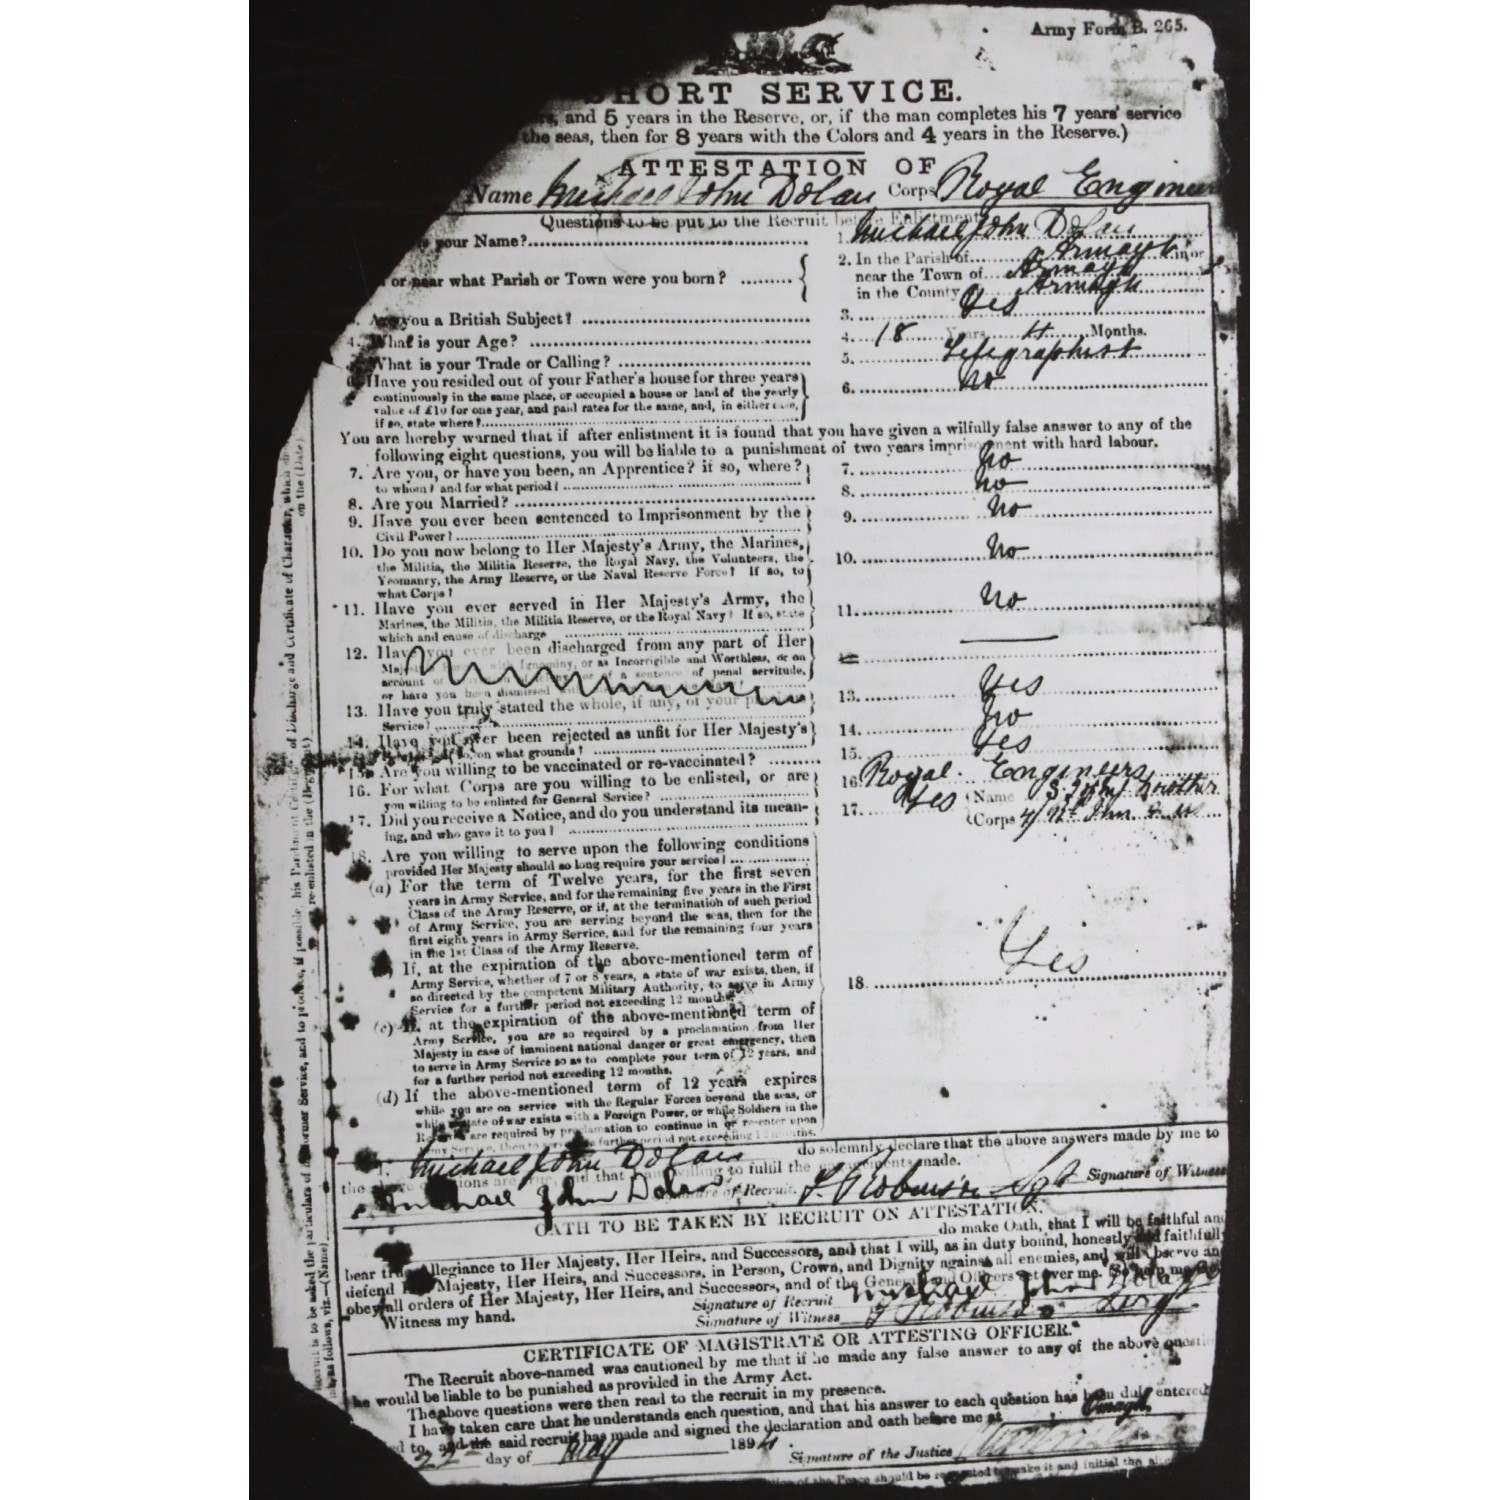 Army Form B. 265.
SHORT SERVICE.
and 5 years in the Reserve, or, if the man completes his 7 years' service
the seas, then for 8 years with the Colors and 4 years in the Reserve.)
ATTESTATION OF
Name Michael John Dolan Corps Royal Engineers
Questions to be put to the Recruit before Enlistment
your Name? 1. Michael John Dolan
or near what Parish or Town were you born? 2. In the Parish of Armagh in or
near the Town of Armagh
in the County Armagh
Are you a British Subject? 3. Yes
4. What is your Age? 4. 18 Years 4 Months.
What is your Trade or Calling? 5. Telegraphist
6. Have you resided out of your Father's house for three years 6. No
continuously in the same place, or occupied a house or land of the yearly
value of £10 for one year, and paid rates for the same, and, in either case,
if so, state where?
You are hereby warned that if after enlistment it is found that you have given a wilfully false answer to any of the
following eight questions, you will be liable to a punishment of two years imprisonment with hard labour.
7. Are you, or have you been, an Apprentice? if so, where? 7. No
to whom? and for what period?
8. Are you Married? 8. No
9. Have you ever been sentenced to Imprisonment by the 9. No
Civil Power?
10. Do you now belong to Her Majesty's Army, the Marines, 10. No
the Militia, the Militia Reserve, the Royal Navy, the Volunteers, the
Yeomanry, the Army Reserve, or the Naval Reserve Force? If so, to
what Corps?
11. Have you ever served in Her Majesty's Army, the 11. No
Marines, the Militia, the Militia Reserve, or the Royal Navy? If so, state
which and cause of discharge
12. Have you ever been discharged from any part of Her
with Ignominy, or as Incorrigible and Worthless, or on
account of a sentence of penal servitude,
or have you been dismissed
13. Have you truly stated the whole, if any, of your previous 13. Yes
Service?
14. Have you ever been rejected as unfit for Her Majesty's 14. No
so, on what grounds?
15. Are you willing to be vaccinated or re-vaccinated? 15. Yes
16. For what Corps are you willing to be enlisted, or are 16. Royal Engineers
you willing to be enlisted for General Service?
17. Did you receive a Notice, and do you understand its mean- 17. Yes Name
ing, and who gave it to you? Corps
18. Are you willing to serve upon the following conditions 18. Yes
provided Her Majesty should so long require your service?
(a) For the term of Twelve years, for the first seven
years in Army Service, and for the remaining five years in the First
Class of the Army Reserve, or if, at the termination of such period
of Army Service, you are serving beyond the seas, then for the
first eight years in Army Service, and for the remaining four years
in the 1st Class of the Army Reserve.
If, at the expiration of the above-mentioned term of
Army Service, whether of 7 or 8 years, a state of war exists, then, if
so directed by the competent Military Authority, to serve in Army
Service for a further period not exceeding 12 months.
(c) If, at the expiration of the above-mentioned term of
Army Service, you are so required by a proclamation from Her
Majesty in case of imminent national danger or great emergency, then
to serve in Army Service so as to complete your term of 12 years, and
for a further period not exceeding 12 months.
(d) If the above-mentioned term of 12 years expires
while you are on service with the Regular Forces beyond the seas, or
while a state of war exists with a Foreign Power, or while Soldiers in the
Reserve are required by proclamation to continue in or re-enter upon
Army Service, then to serve for a further period not exceeding 12 months.
I, Michael John Dolan do solemnly declare that the above answers made by me to
the above questions are true, and that I am willing to fulfil the engagements made.
Michael John Dolan Signature of Recruit. Robinson Sgt Signature of Witness
OATH TO BE TAKEN BY RECRUIT ON ATTESTATION.
do make Oath, that I will be faithful and
bear true Allegiance to Her Majesty, Her Heirs, and Successors, and that I will, as in duty bound, honestly and faithfully
defend Her Majesty, Her Heirs, and Successors, in Person, Crown, and Dignity against all enemies, and will observe and
obey all orders of Her Majesty, Her Heirs, and Successors, and of the Generals and Officers set over me. So help me
Witness my hand. Signature of Recruit Michael John Dolan
Signature of Witness Robinson Sergt
CERTIFICATE OF MAGISTRATE OR ATTESTING OFFICER.
The Recruit above-named was cautioned by me that if he made any false answer to any of the above questions
he would be liable to be punished as provided in the Army Act.
The above questions were then read to the recruit in my presence.
I have taken care that he understands each question, and that his answer to each question has been duly entered
to, and the said recruit has made and signed the declaration and oath before me at Omagh
22 day of May 1894.
Signature of the Justice
of the Peace should be requested to make it and initial the